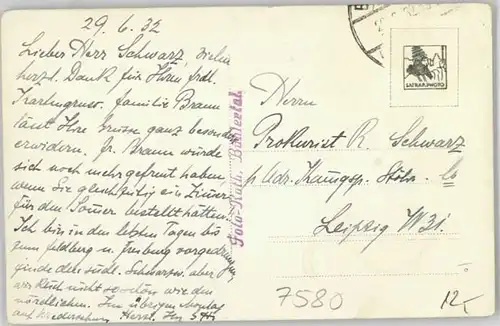 29.6.32
Lieber Herr Schwarz, vielen
herzl. Dank für Ihren frdl.
Kartengruss. Familie Braun
läßt Ihre Grüsse ganz besonders
erwidern. Fr. Braun würde
sich noch mehr gefreut haben
wenn Sie gleichzeitig ein Zimmer
für den Somer bestellt hätten.
Ich bin in den letzten Tagen bis
zum Feldberg u. Freiburg vorgedrungen,
finde den südl. Schwarzw. aber
nicht so schön wie den
nördlichen. Im übrigen Montag
auf Wiedersehen. Herzl. Ihr
Foto-Kult. Bühlertal.
LAFRAR-PHOTO
Herrn
Prokurist R. Schwarz
Leipzig W31.
7580
12,-